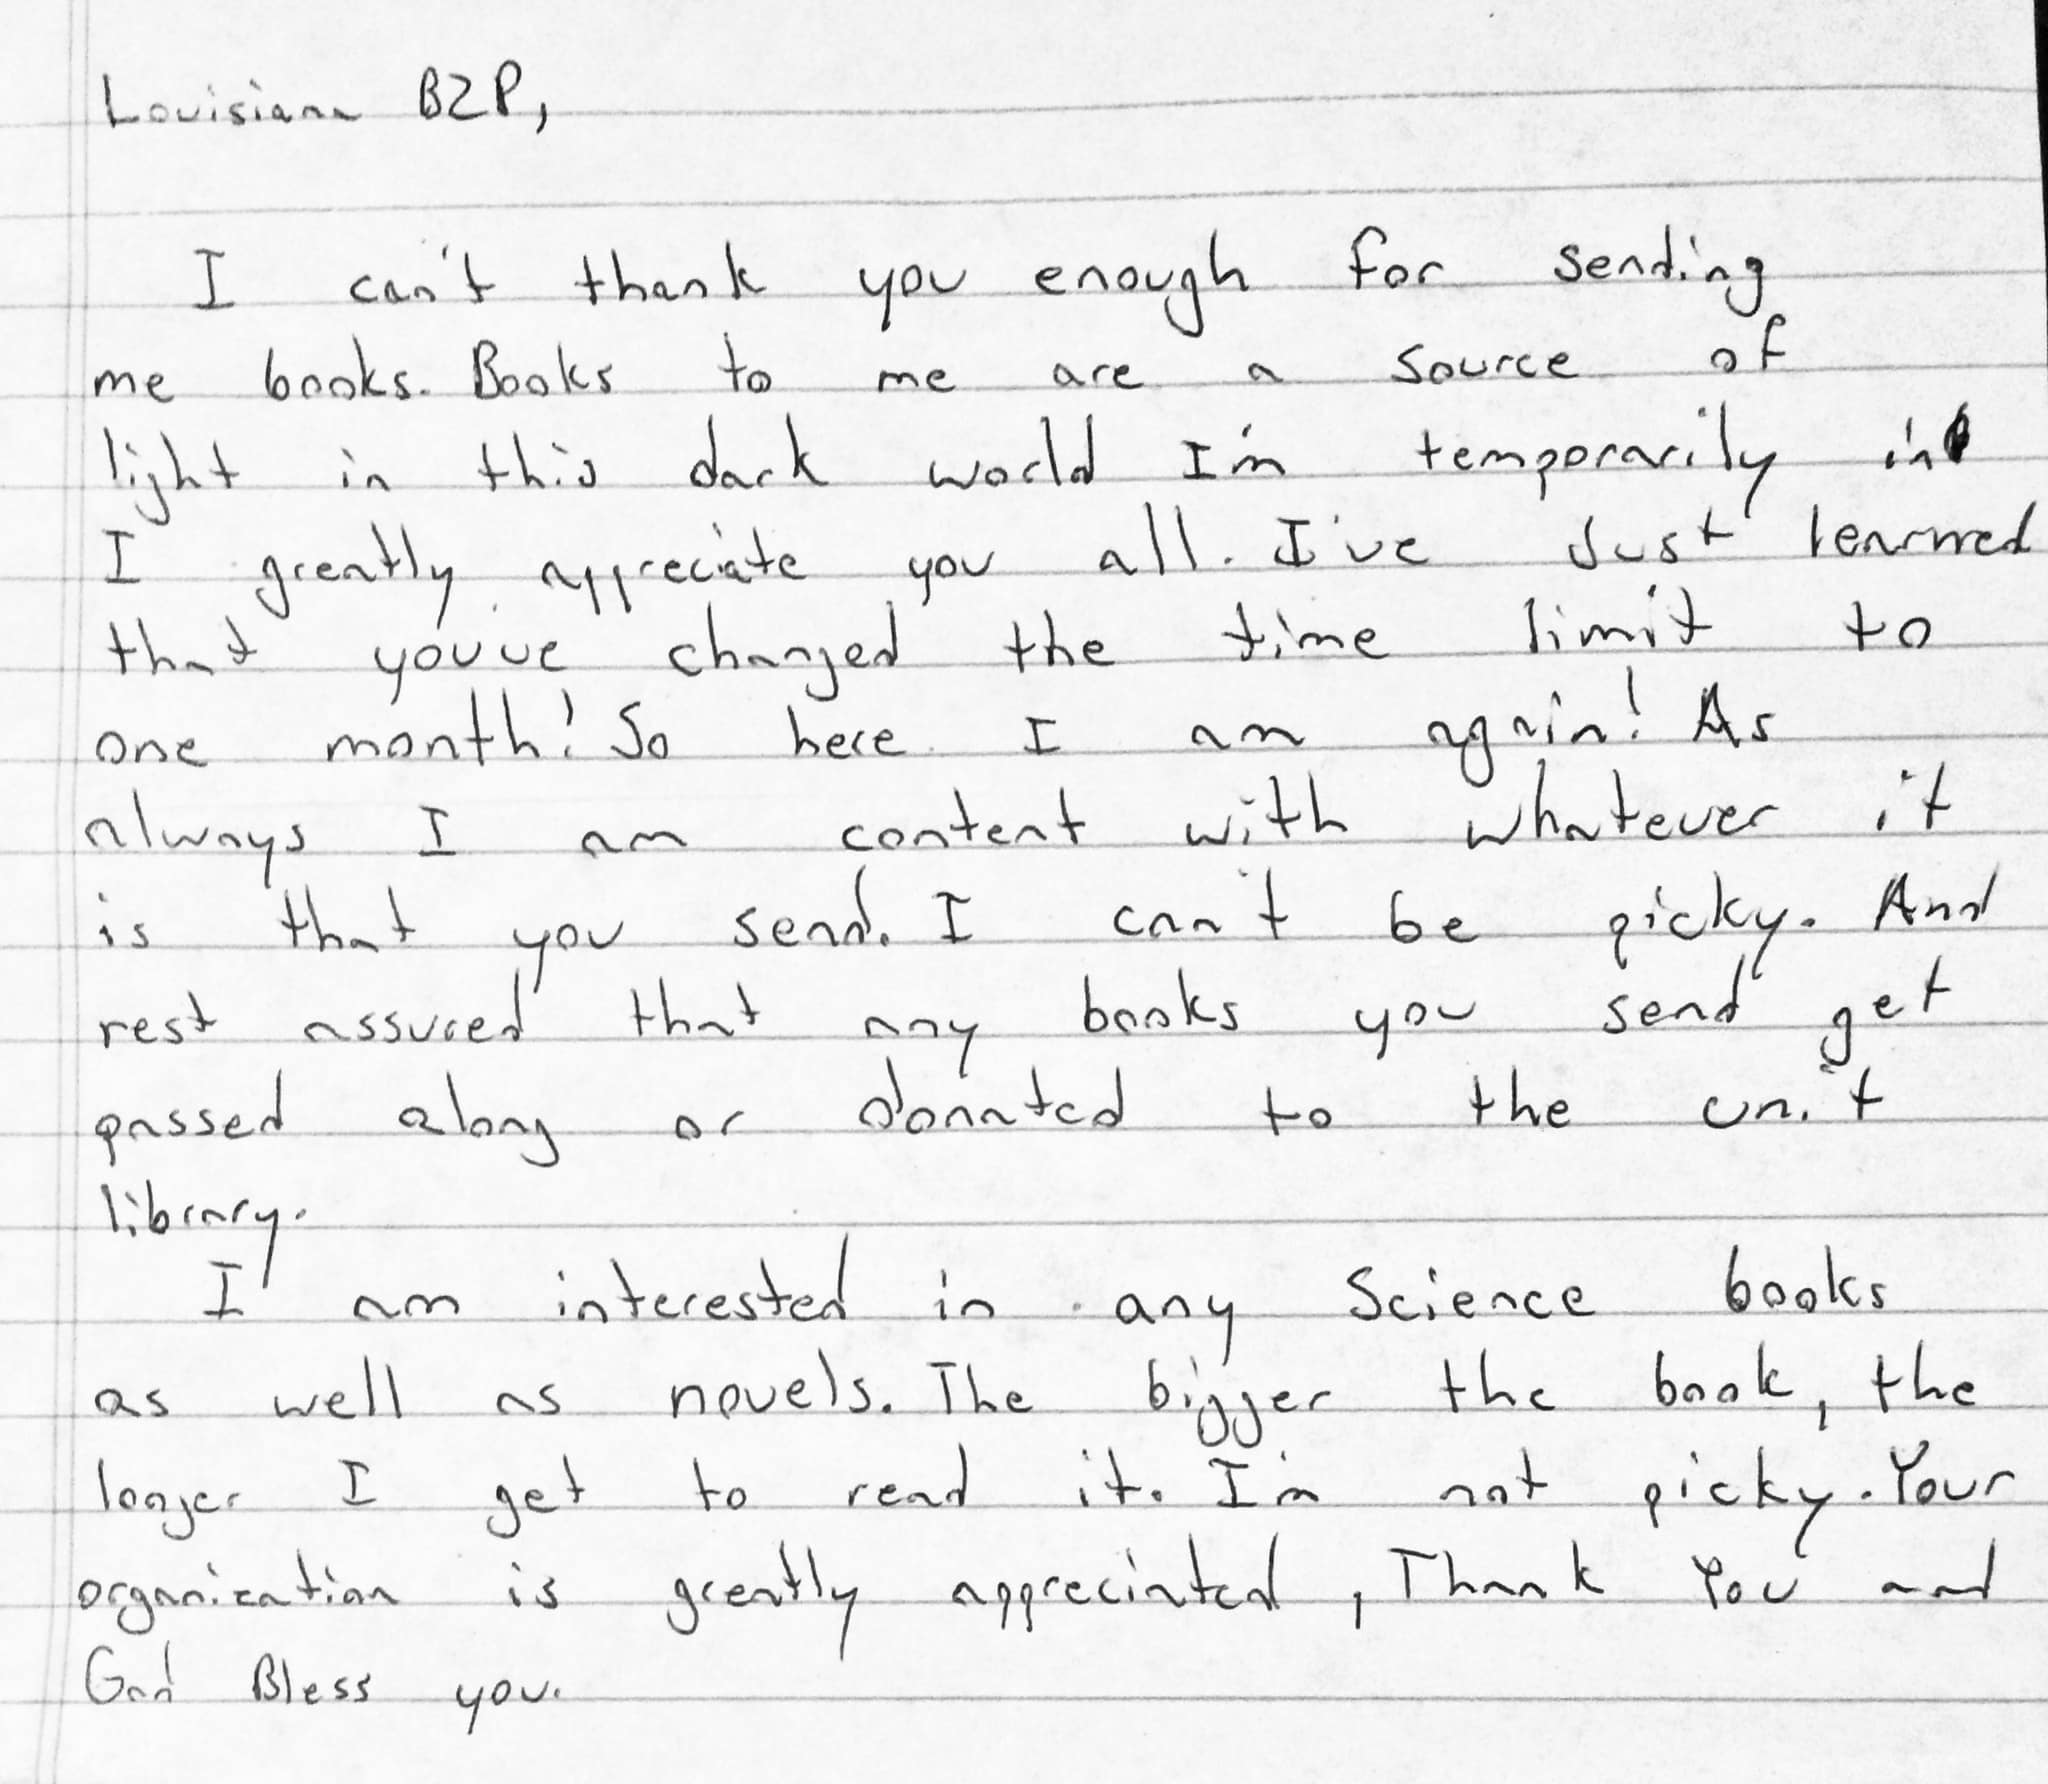 Louisiana B2P,
I can't thank you enough for sending
me books. Books to me are a source of
light in this dark world I'm temporarily in
I greatly appreciate you all. I've Just learned
that you've changed the time limit to
one month! So here I am again! As
always I am content with whatever it
is that you send. I can't be picky. And
rest assured that any books you send get
passed along or donated to the unit
library.
I am interested in any Science books
as well as novels. The bigger the book, the
longer I get to read it. I'm not picky. Your
organization is greatly appreciated, Thank You and
God Bless you.